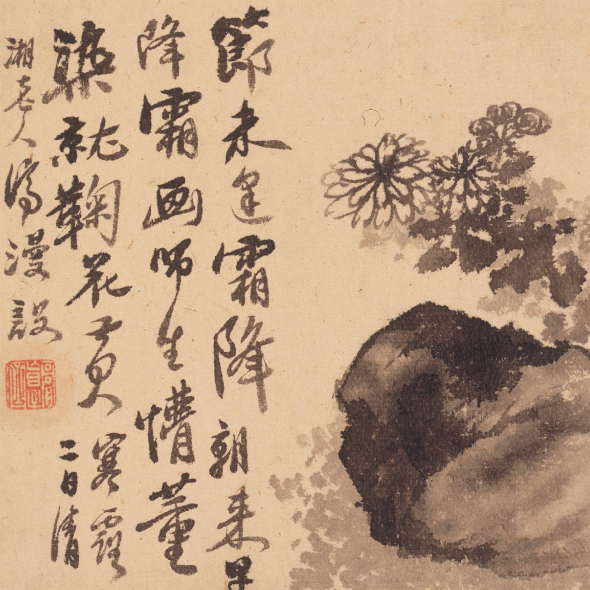 節未逢霜降朝來早
降霜画師生懵董
染就鞠花黃寒露
二日清
湘老人濟漫設